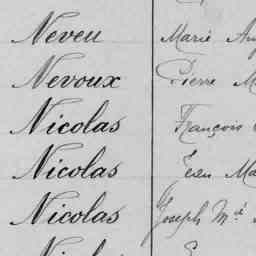 Neveu Marie
Nevoux Pierre
Nicolas François
Nicolas Jean
Nicolas Joseph Mie